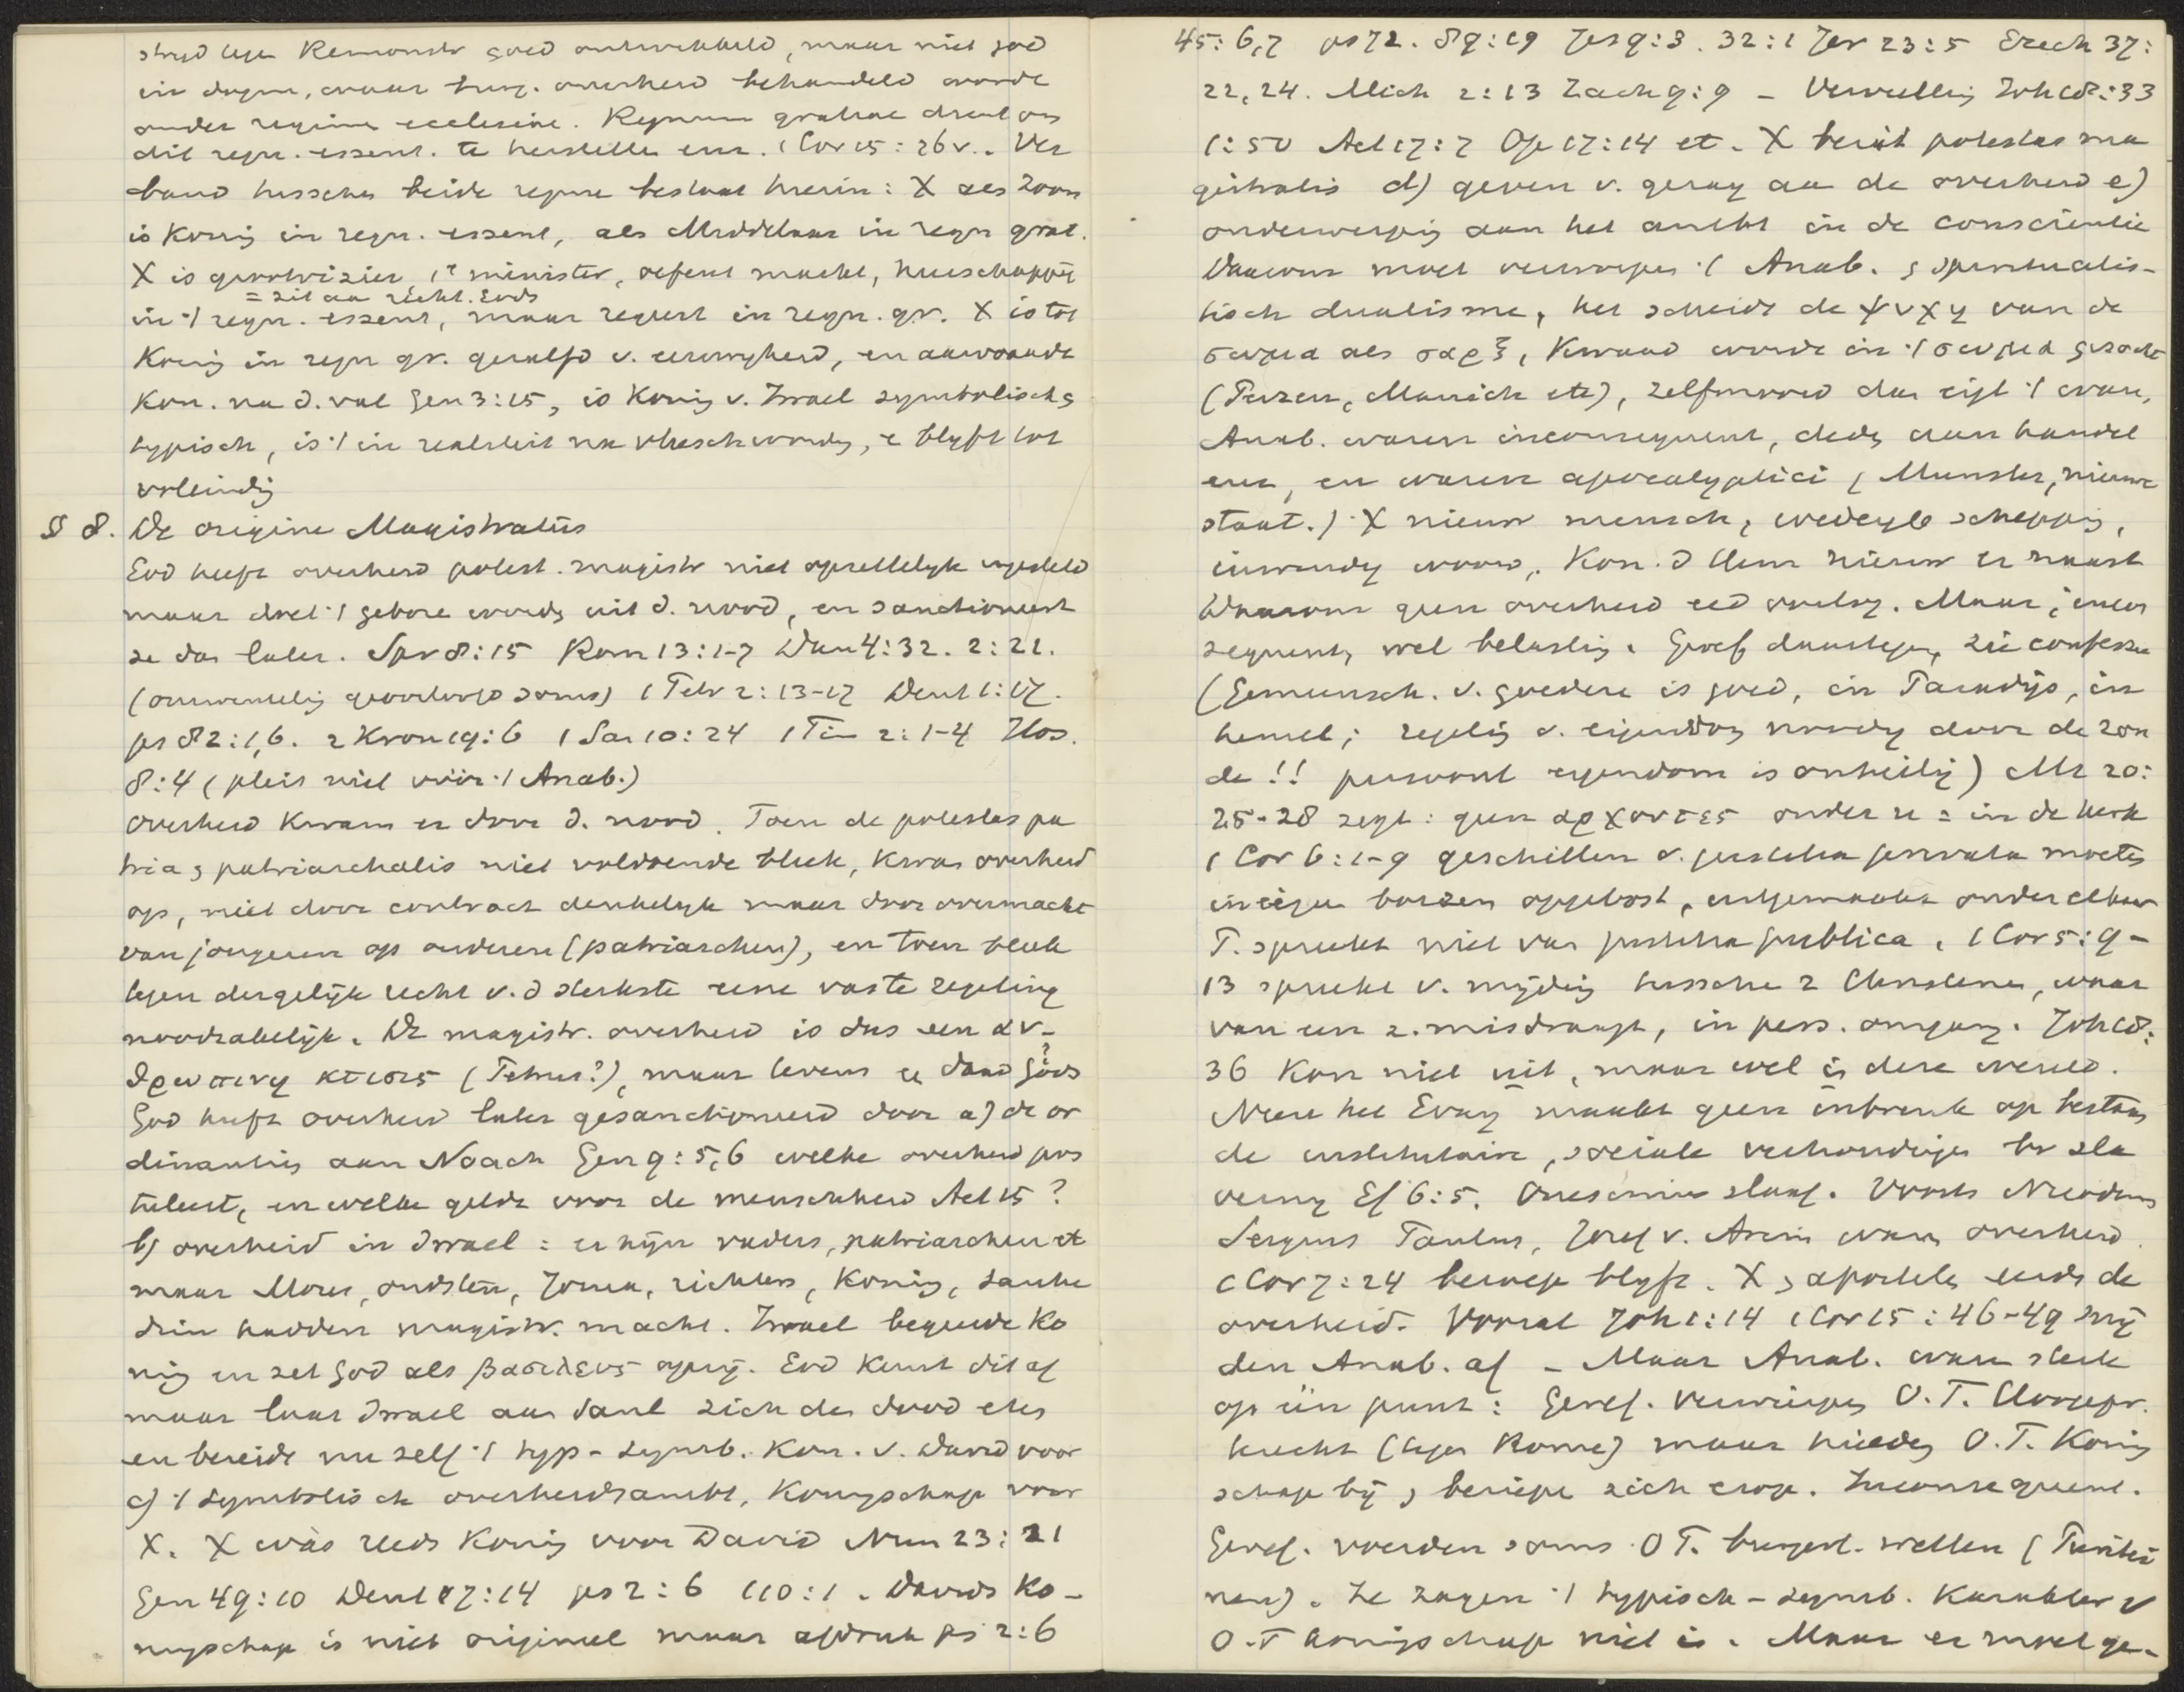 strijd tegen Remonstr goed ontwikkeld, maar niet goed
in dogm, waar burg. overheid behandeld werde
onder regime ecclesiae. Regnum gratiae dient om
dit regn. essent. te herstelle enz. 1 Cor 15:26v.. Ver
band tusschen beide regne bestaat hierin: X als Zoon
is Konig in regn. essent, als Middelaar in regn grat.
X is grootvizier 1e minister, oefent macht, heerschappij
= zit aan recht. Gods
in 't regn. essent, maar regeert in regn. gr. X is tot
Konig in regn gr. gezalfd v. eeuwigheid, en aanvaarde
Kon. na d. val Gen 3:15, is Konig v. Israel symbolisch &
typisch, is 't in realiteit na vleeschwordg, & blijft tot
voleindig
§ 8. De origine Magistratus
God heeft overheid potest. magistr niet opzettelijk ingesteld
maar doet 't gebore wordg uit d. nood, en sanctioneert
ze dan later. Spr 8:15 Rom 13:1-7 Dan 4:32. 2:21.
(omwentelig geoorloofd soms) 1 Petr 2:13-17 Deut 1:17.
ps 82:1,6. 2 Kron 19:6 1 Sam 10:24 1 Tim 2:1-4 Hos.
8:4 (pleit niet vóór 't Anab.)
Overheid kwam er door d. nood. Toen de potestas pa
tria & patriarchalis niet voldoende bleek, kwam overheid
op, niet door contract denkelijk maar door overmacht
van jongeren op ouderen (patriarchen), en toen bleek
tegen dergelijk recht v. d sterkste eene vaste regeling
noodzakelijk. De magistr. overheid is dus een ἀν-
θρωπινη κτισις (Petrus?), maar tevens ee daad Gods
God heeft overheid later gesanctioneerd door a) de or
dinantiën aan Noach Gen 9:5,6 welke overheid pos
tuleert, en welke geldt voor de menschheid Act 15?
b) overheid in Israel: er zijn vaders, patriarchen et
maar Mozes, oudsten, Jozua, richters, Konig, Sanhe
drin hadden magistr. macht. Israel begeerde Ko
nig en zet God als βασιλευς opzij. God keurt dit af
maar laat Israel aan Saul zich den dood eten
en bereidt nu zelf 't typ-symb. Kon. v. David voor
c) 't symbolische overheidsambt, Koningschap voor
X. X wás reeds Konig voor David Num 23:21
Gen 49:10 Deut 17:14 ps 2:6 110:1. Davids Ko-
ningschap is niet origineel maar afdruk ps 2:6
45:6,7 ps 72. 89:19 Jes 9:3. 32:1 Jer 23:5 Ezech 37:
22,24. Mich 2:13 Zach 9:9 - Vervullig Joh 18:33
1:50 Act 17:7 Op 17:14 et. X bezit potestas ma
gistralis d) geven v. gezag aan de overheid e)
onderwerpig aan het ambt in de conscientie
Daarom moet verworpen 't Anab. & spiritualis-
tisch dualisme, het scheidt de ψυχη van de
σωμα als σαρξ, Kwaad werde in 't σωμα gezocht
(Perzen, Manich etc), zelfmoord dan eigl 't ware,
Anab. waren inconsequent, dedg aan handel
enz, en waren apocalyptici (Munster, nieuwe
staat.) X nieuw mensch, wedergeb schepping,
inwendig woord, Kon. d Hem. nieuw er naast
Daarom geen overheid eed oorlog. Maar, incon
sequent, wel belastig. Geref daartegen, zie confessie
(Gemeensch. v. goedere is goed, in Paradijs, in
hemel; regelig v. eigendom noodig door de zon
de!! persoonl eigendom is onheilig) Mt 20:
25-28 zegt: geen αρχοντες onder u = in de kerk
1 Cor 6:1-9 geschillen v. justitia privata moeten
in eigen boezem opgelost, uitgemaakt onder elkaar
P. spreekt niet van justitia publica. 1 Cor 5:9-
13 spreekt v. mijdig tussche 2 Christene, waar
van een z. misdraagt, in pers. omgang. Joh 18:
36 Kon niet uit, maar wel in deze wereld.
Neen het Evang maakt geen inbreuk op bestaan
de institutaire, sociale verhoudingen bv sla
verny Ef 6:5. Onesimus slaaf. Voorts Nicodemus
Sergius Paulus, Jozef v. Arim ware overheid.
1 Cor 7:24 beroep blijft. X & apostele eerde de
overheid. Vooral Joh 1:14 1 Cor 15:46-49 snij
den Anab. af - Maar Anab. ware sterk
op één punt: Geref. verwierpen O.T. Hoogepr.
(tegen Rome) maar hieldg O.T. Konig
schap bij & beriepe zich erop. Inconsequent.
Geref. voerden soms O T. burgerl. wetten (Purite
nen). Ze zagen 't typisch-symb. Karakter v
O.T koningschap niet in. Maar er moet ge-